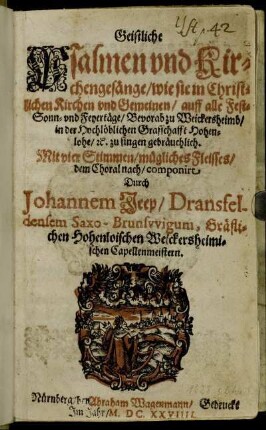 42
Geistliche
Psalmen vnd Kir-
chengesänge/ wie sie in Christ-
lichen Kirchen vnd Gemeinen/ auff alle Fest-
Sonn- vnd Feyertäge/ Bevorab zu Weickersheimb/
in der Hochlöblichen Graffschafft Hohen-
lohe/ ꝛc. zu singen gebräuchlich.
Mit vier Stimmen/ mügliches Fleisses/
dem Choral nach/ componirt/
Durch
Johannem Jeep/ Dransfel-
densem Saxo-Brunsvvigum, Gräfli-
chen Hohenloischen Weickersheimi-
schen Capellenmeistern.
Nürnberg/ bey Abraham Wagenmann/ Gedruckt
Im Jahr/ M. DC. XXVIIII.